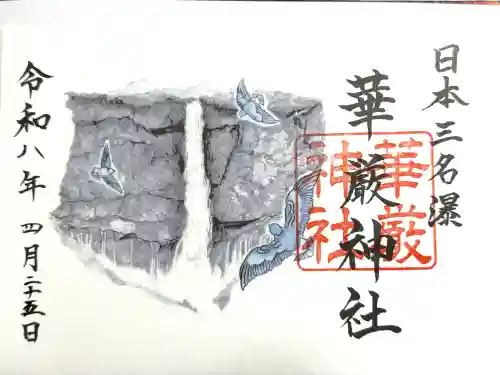 日本三名瀑
華厳神社
華厳神社
令和八年 四月二十五日